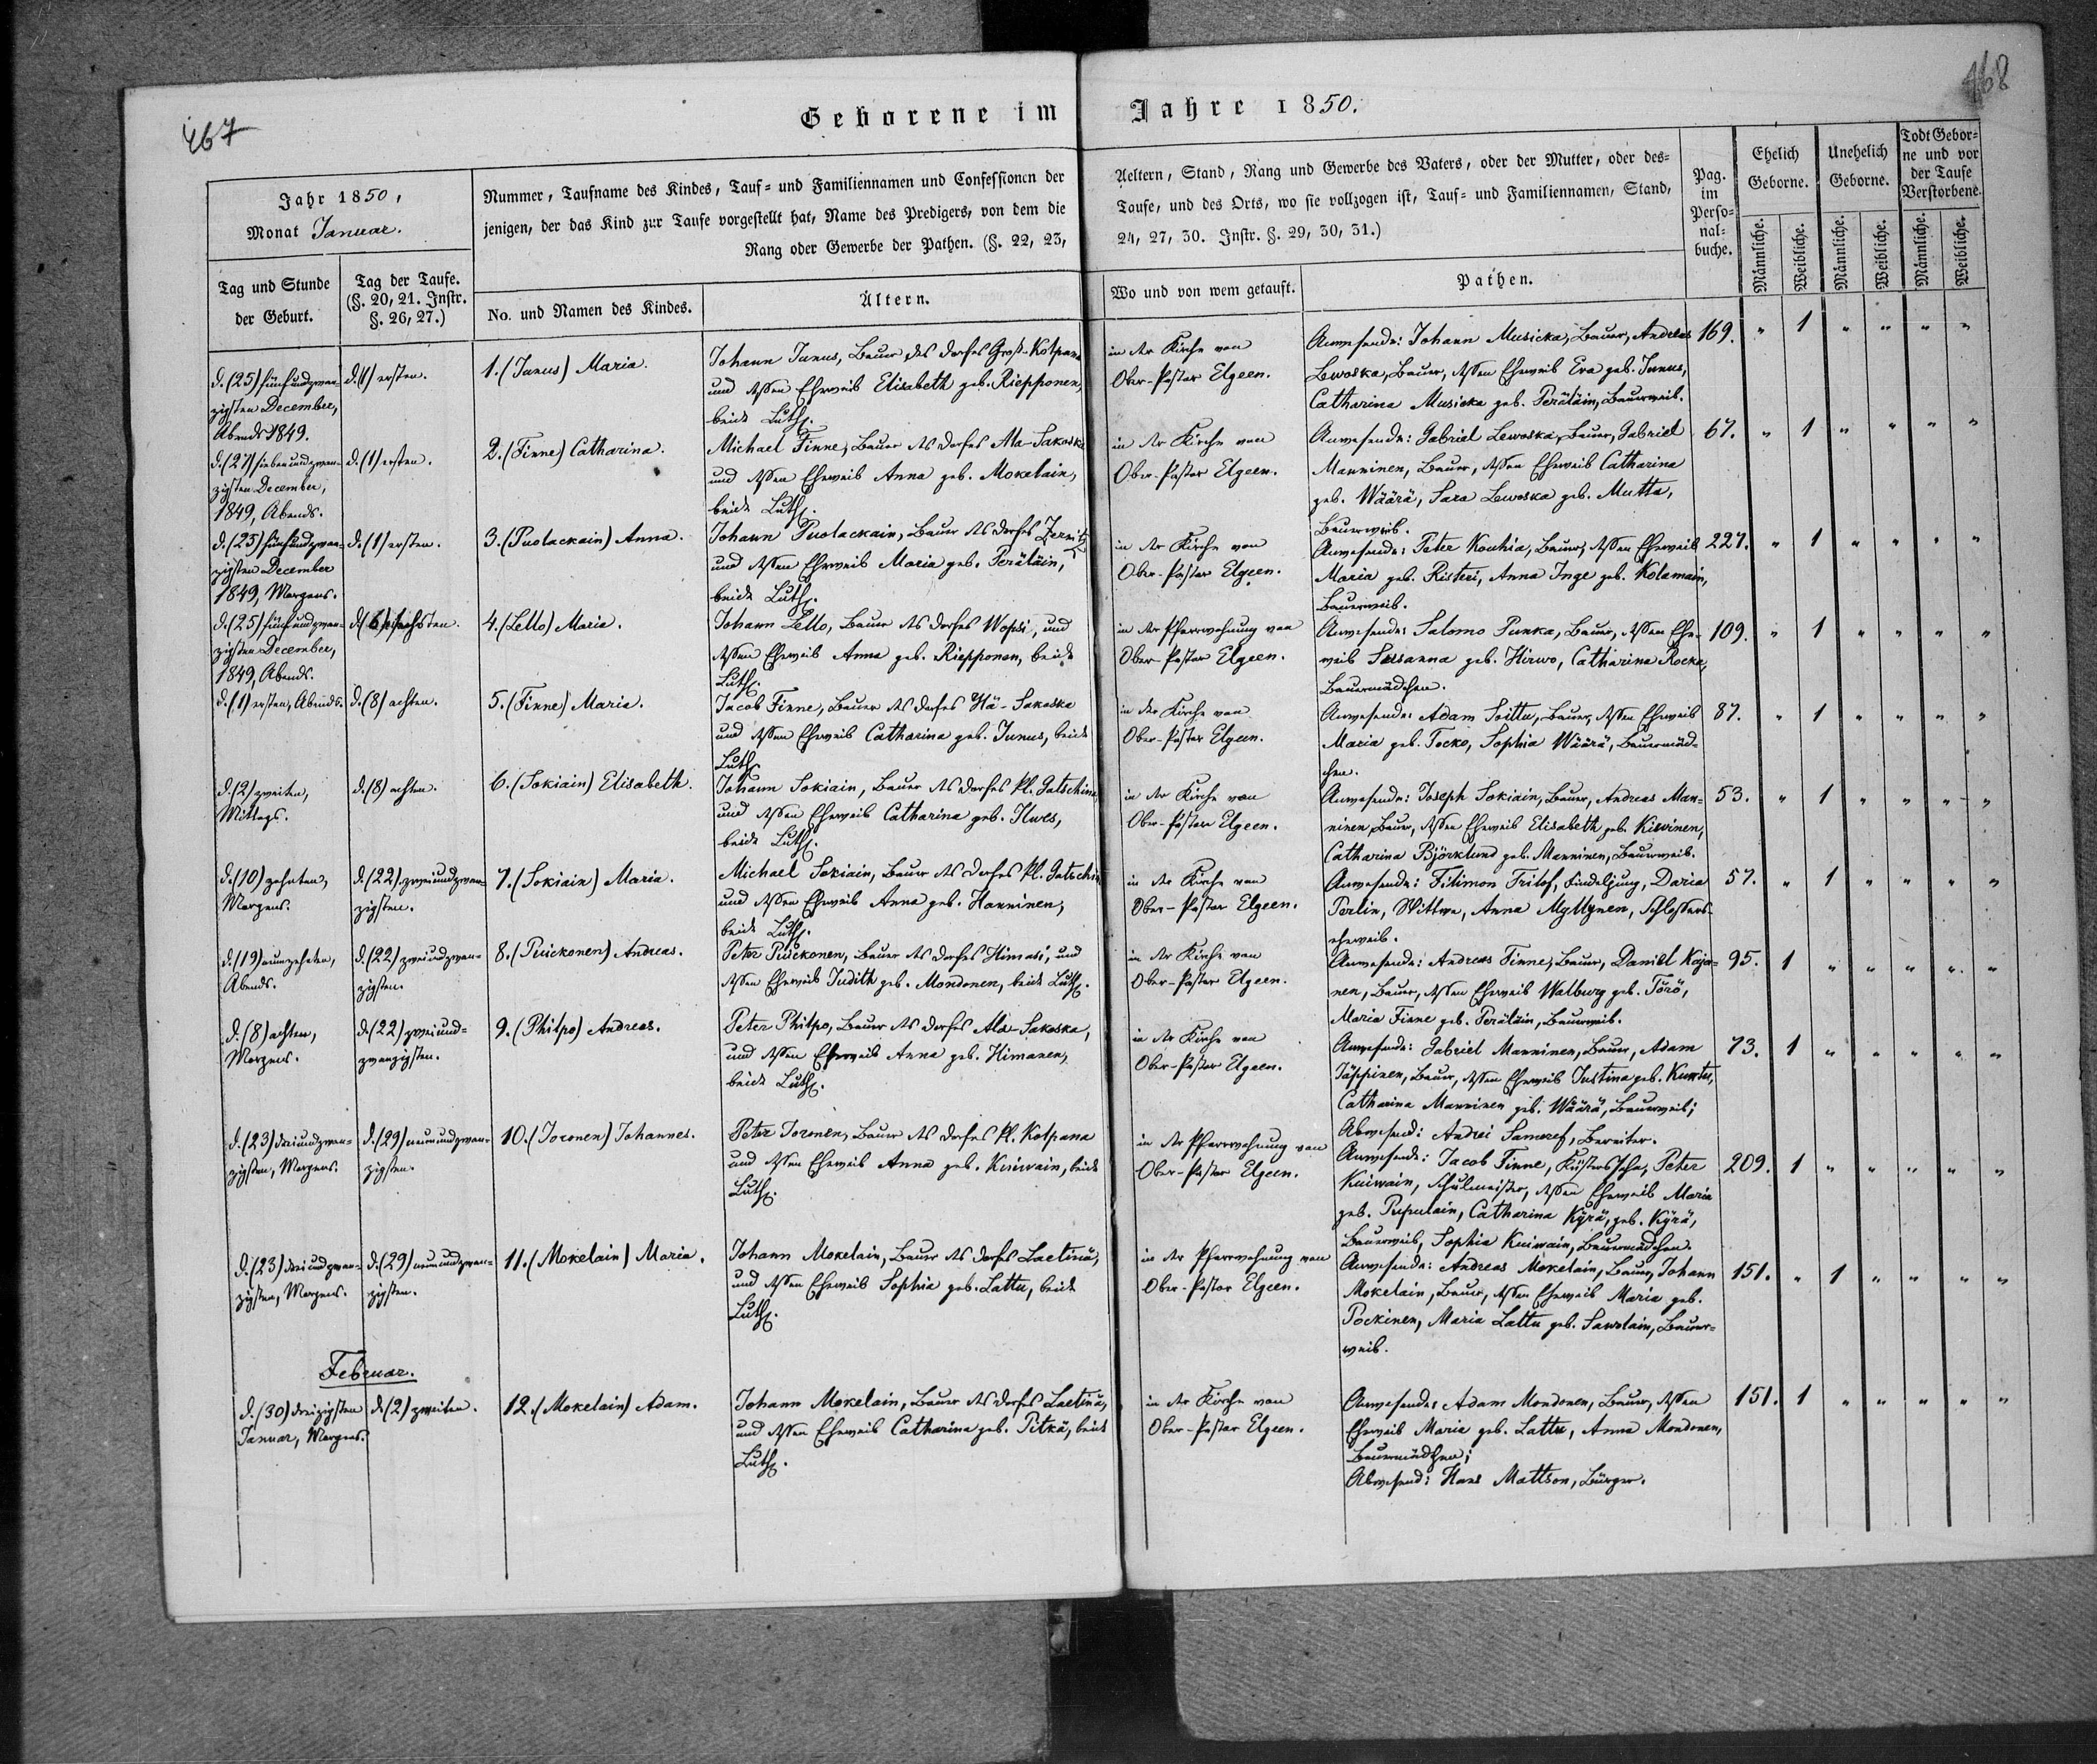 467
468
Geborene im Jahre 1850.
Jahr 1850,
Monat Januar.
Nummer, Taufname des Kindes, Tauf- und Familiennamen und Confessionen der Aeltern, Stand, Rang und Gewerbe des Vaters, oder der Mutter, oder des-
jenigen, der das Kind zur Taufe vorgestellt hat, Name des Predigers, von dem die Taufe, und des Orts, wo sie vollzogen ist, Tauf- und Familiennamen, Stand,
Rang oder Gewerbe der Pathen. (§. 22, 23, 24, 27, 30. Instr. §. 29, 30, 31.)
Pag.
im
Perso-
nal-
buche.
Ehelich
Geborne.
Unehelich
Geborne.
Todt Gebor-
ne und vor
der Taufe
Verstorbene.
Männliche.
Weibliche.
Männliche.
Weibliche.
Männliche.
Weibliche.
Tag und Stunde
der Geburt.
Tag der Taufe.
(§. 20, 21. Instr.
§. 26, 27.)
No. und Namen des Kindes.
Ältern.
Wo und von wem getauft.
Pathen.
d. (25) fünfundzwan-
zigsten December,
Abends 1849.
d. (1) ersten.
1. (Junus) Maria.
Johann Junus, Bauer des Dorfes Groß-Kolpana
und dessen Eheweib Elisabeth geb. Riepponen,
beide Luth.
in der Kirche von
Ober-Pastor Elgeen.
Anwesende: Johann Musicka, Bauer, Andreas
Lewoska, Bauer, dessen Eheweib Eva geb. Junus,
Catharina Musicka geb. Peräläin, Bauerweib.
169. " 1 " " " "
d. (27) siebenundzwan-
zigsten December,
1849, Abends.
d. (1) ersten.
2. (Finne) Catharina.
Michael Finne, Bauer des Dorfes Ala-Sakoska
und dessen Eheweib Anna geb. Mokelain,
beide Luth.
in der Kirche von
Ober-Pastor Elgeen.
Anwesende: Gabriel Lewoska, Bauer, Gabriel
Manninen, Bauer, dessen Eheweib Catharina
geb. Wäärä, Sara Lewoska geb. Mutta,
Bauerweib.
67. " 1 " " " "
d. (25) fünfundzwan-
zigsten December
1849, Morgens.
d. (1) ersten.
3. (Puolackain) Anna.
Johann Puolackain, Bauer des Dorfes
und dessen Eheweib Maria geb. Peräläin,
beide Luth.
in der Kirche von
Ober-Pastor Elgeen.
Anwesende: Peter Kouhia, Bauer, dessen Eheweib
Maria geb. Risteri, Anna Inge geb. Kolamain,
Bauerweib.
227. " 1 " " " "
d. (25) fünfundzwan-
zigsten December,
1849, Abends.
d. (6) sechsten.
4. (Lello) Maria.
Johann Lello, Bauer des Dorfes Wopsi, und
dessen Eheweib Anna geb. Riepponen, beide
Luth.
in der Pfarrwohnung von
Ober-Pastor Elgeen.
Anwesende: Salomo Punka, Bauer, dessen Ehe-
weib Susanna geb. Hirwo, Catharina Rocka,
Bauermädchen.
109. " 1 " " " "
d. (1) ersten, Abends.
d. (8) achten.
5. (Finne) Maria.
Jacob Finne, Bauer des Dorfes Yä-Sakoska
und dessen Eheweib Catharina geb. Junus, beide
Luth.
in der Kirche von
Ober-Pastor Elgeen.
Anwesende: Adam Soittu, Bauer, dessen Eheweib
Maria geb. Tocko, Sophia Wäärä, Bauermäd-
chen.
87. " 1 " " " "
d. (2) zweiten,
Mittags.
d. (8) achten.
6. (Sokiain) Elisabeth.
Johann Sokiain, Bauer des Dorfes Kl. Gatschina,
und dessen Eheweib Catharina geb. Ilwes,
beide Luth.
in der Kirche von
Ober-Pastor Elgeen.
Anwesende: Joseph Sokiain, Bauer, Andreas Man-
ninen, Bauer, dessen Eheweib Elisabeth geb. Kiwinen,
Catharina Björklund geb. Manninen, Bauerweib.
53. " 1 " " " "
d. (10) zehnten,
Morgens.
d. (22) zweiundzwan-
zigsten.
7. (Sokiain) Maria.
Michael Sokiain, Bauer des Dorfes Kl. Gatschina
und dessen Eheweib Anna geb. Hanninen,
beide Luth.
in der Kirche von
Ober-Pastor Elgeen.
Anwesende: Filimon Tritof, Findeljung, Daria
Perlin, Wittwe, Anna Myllynen, Schlossers-
eheweib.
57. " 1 " " " "
d. (19) neunzehnten,
Abends.
d. (22) zweiundzwan-
zigsten.
8. (Puickonen) Andreas.
Peter Puickonen, Bauer des Dorfes Himasi, und
dessen Eheweib Judith geb. Mondonen, beide Luth.
in der Kirche von
Ober-Pastor Elgeen.
Anwesende: Andreas Finne, Bauer, Daniel Kaja-
nen, Bauer, dessen Eheweib Walburg geb. Törö,
Maria Finne geb. Peräläin, Bauerweib.
95. 1 " " " " "
d. (8) achten,
Morgens.
d. (22) zweiund-
zwanzigsten.
9. (Philpo) Andreas.
Peter Philpo, Bauer des Dorfes Ala-Sakoska,
und dessen Eheweib Anna geb. Himanen,
beide Luth.
in der Kirche von
Ober-Pastor Elgeen.
Anwesende: Gabriel Manninen, Bauer, Adam
Jäppinen, Bauer, dessen Eheweib Justina geb.
Catharina Manninen geb. Wäärä, Bauerweib;
Abwesend: Andrei Samoref, Bereiter.
73. 1 " " " " "
d. (23) dreiundzwan-
zigsten, Morgens.
d. (29) neunundzwan-
zigsten.
10. (Toronen) Johannes.
Peter Toronen, Bauer des Dorfes Kl. Kolpana
und dessen Eheweib Anna geb. Kuiwain, beide
Luth.
in der Pfarrwohnung von
Ober-Pastor Elgeen.
Anwesende: Jacob Finne, Küsters Sohn, Peter
Kuiwain, Schulmeister, dessen Eheweib Maria
geb. Pupulain, Catharina Kyrä, geb. Kyrä,
Bauerweib, Sophia Kuiwain, Bauermädchen.
209. 1 " " " " "
d. (23) dreiundzwan-
zigsten, Morgens.
d. (29) neunundzwan-
zigsten.
11. (Mokelain) Maria.
Johann Mokelain, Bauer des Dorfes Laetinä,
und dessen Eheweib Sophia geb. Lattu, beide
Luth.
in der Pfarrwohnung von
Ober-Pastor Elgeen.
Anwesende: Andreas Mokelain, Bauer, Johann
Mokelain, Bauer, dessen Eheweib Maria geb.
Pockinen, Maria Lattu geb. Sawolain, Bauer-
weib.
151. " 1 " " " "
Februar.
d. (30) dreizigsten
Januar, Morgens.
d. (2) zweiten.
12. (Mokelain) Adam.
Johann Mokelain, Bauer des Dorfes Laetinä,
und dessen Eheweib Catharina geb. Pitkä, beide
Luth.
in der Kirche von
Ober-Pastor Elgeen.
Anwesende: Adam Mondonen, Bauer, dessen
Eheweib Maria geb. Lattu, Anna Mondonen,
Bauermädchen;
Abwesend: Hans Mattson, Bürger.
151. 1 " " " " "